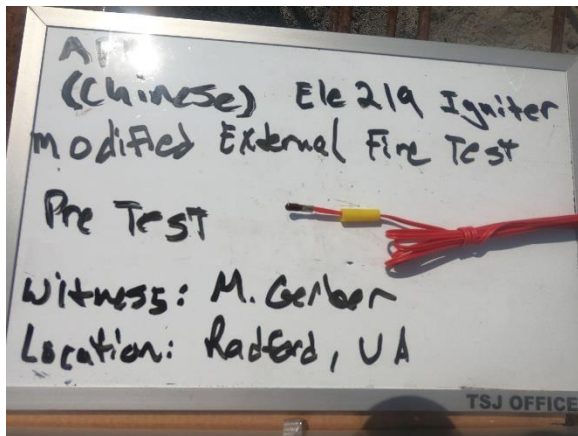 (Chinese) Ele 219 Igniter
modified External Fire Test
Pre Test
Witness: M. Gerber
Location: Radford, VA
TSJ OFFICE